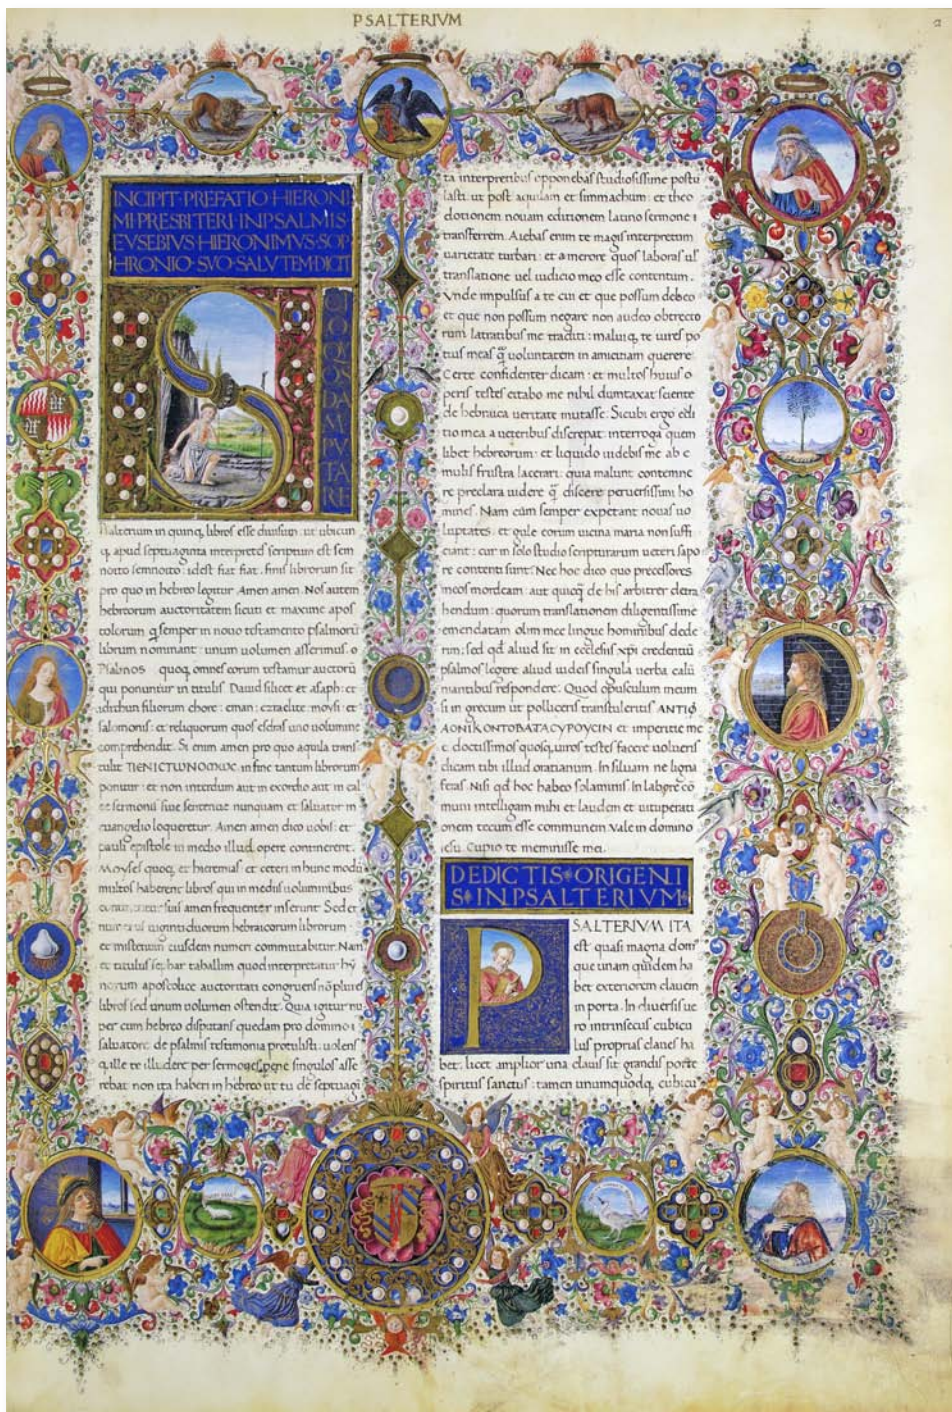 PSALTERIVM
INCIPIT·PREFATIO·HIERONI
MI·PRESBITERI·INPSALMIS·
EVSEBIVS·HIERONIMVS·SOP
HRONIO·SVO·SALVTEM·DICIT
S
CIO QVOSDAM PVTARE
psalterium in quinq; libros esse diuisum: ut ubicun
q; apud septuaginta interpretes scriptum est sem
notto semnotto: idest fiat fiat: finis librorum sit
pro quo in hebreo legitur Amen amen. Nos autem
hebreorum auctoritatem sicuti et maxime apos
tolorum q semper in nouo testamento psalmorū
librum nominant: unum uolumen asserimus. o
Psalmos quoq; omnes eorum testamur auctorū
qui ponuntur in titulis Dauid silicet et asaph: et
idithun filiorum chore: eman: ezraite: moysi: et
salomonis: et reliquorum quos esdras uno uolumine
comprehendit. Si enim amen pro quo aquila trans
tulit in fine tantum librorum
ponitur: et non interdum aut in exordio aut in cal
ce sermonis siue sentencie nunquam et saluator in
euangelio loqueretur. Amen amen dico uobis: et
pauli epistole in medio illud opere continerent.
Moyses quoq; et hieremias et ceteri in hunc modū
multos haberent libros qui in mediis uoluminibus
suis amen frequenter inserunt Sed et
numerus uigintiduorum hebraicorum librorum
et misterium eiusdem numeri commutabitur. Nam
et titulus sephar tahallim quod interpretatur hy
norum apostolice auctoritati congruens nō plures
libros sed unum uolumen ostendit. Quia igitur nu
per cum hebreo disputans quedam pro domino
saluatore de psalmis testimonia protulisti: uolens
q; ille te illudere per sermones pene singulos asse
rebat non ita haberi in hebreo ut tu de septuagi
ta interpretibus opponebas studiosissime postu
lasti. ut post aquilam et simmachum: et theo
dotionem nouam editionem latino sermone
transferrem. Aiebas enim te magis interpretum
uarietate turbari: et a merore quos laboras ul
translatione uel iudicio meo esse contentum.
Vnde impulsus a te cui et que possum debeo
et que non possum negare non audeo obtrecto
rum latratibus me traditi: maluiq; te uires po
tius meas q̄ uoluntatem in amicitiam querere
Certe confidenter dicam: et multos huius o
peris testes citabo me nihil dumtaxat sciente
de hebraica ueritate mutasse. Sicubi ergo edi
tio mea a ueteribus discrepat: interroga quem
libet hebreorum: et liquido uidebis me ab e
mulis frustra lacerari: quia malunt contemne
re preclara uidere q̄ discere peruersissimi ho
mines. Nam cum semper expetant nouas uo
luptates: et gule eorum uicina maria non suffi
ciant: cur in solo studio scripturarum ueteri sapo
re contenti sunt: Nec hoc dico quo precessores
meos mordeam: aut quicq; de his arbitrer detra
hendum: quorum translationem diligentissime
emendatam olim mee lingue hominibus dede
rim: sed qd aliud sit in ecclesiis xpi credentiū
psalmos legere: aliud iudeis singula uerba calū
niantibus respondere. Quod opusculum meum
si in grecum ut polliceris transtuleris ΑΝΤΙΦ
ΛΟΝΙΚΟΝΤΟΒΑΤΑCΥΡΟΥCΙΝ et imperitie me
e doctissimos quosq; uiros testes facere uolueris
dicam tibi illud oratianum. In siluam ne ligna
feras. Nisi qd hoc habeo solaminis. In labore cō
muni intelligam mihi et laudem et uituperati
onem tecum esse communem. Vale in domino
iesu. Cupio te meminisse mei.
DEDICTIS·ORIGENI
S·INPSALTERIVM·
P
SALTERIVM ITA
est quasi magna dom'
que unam quidem ha
bet exteriorem clauem
in porta. In diuersis ue
ro intrinsecus cubicu
lus proprias claues ha
bet. licet amplior una clauis sit grandis porte
spiritus sanctus: tamen unumquodq; cubicu